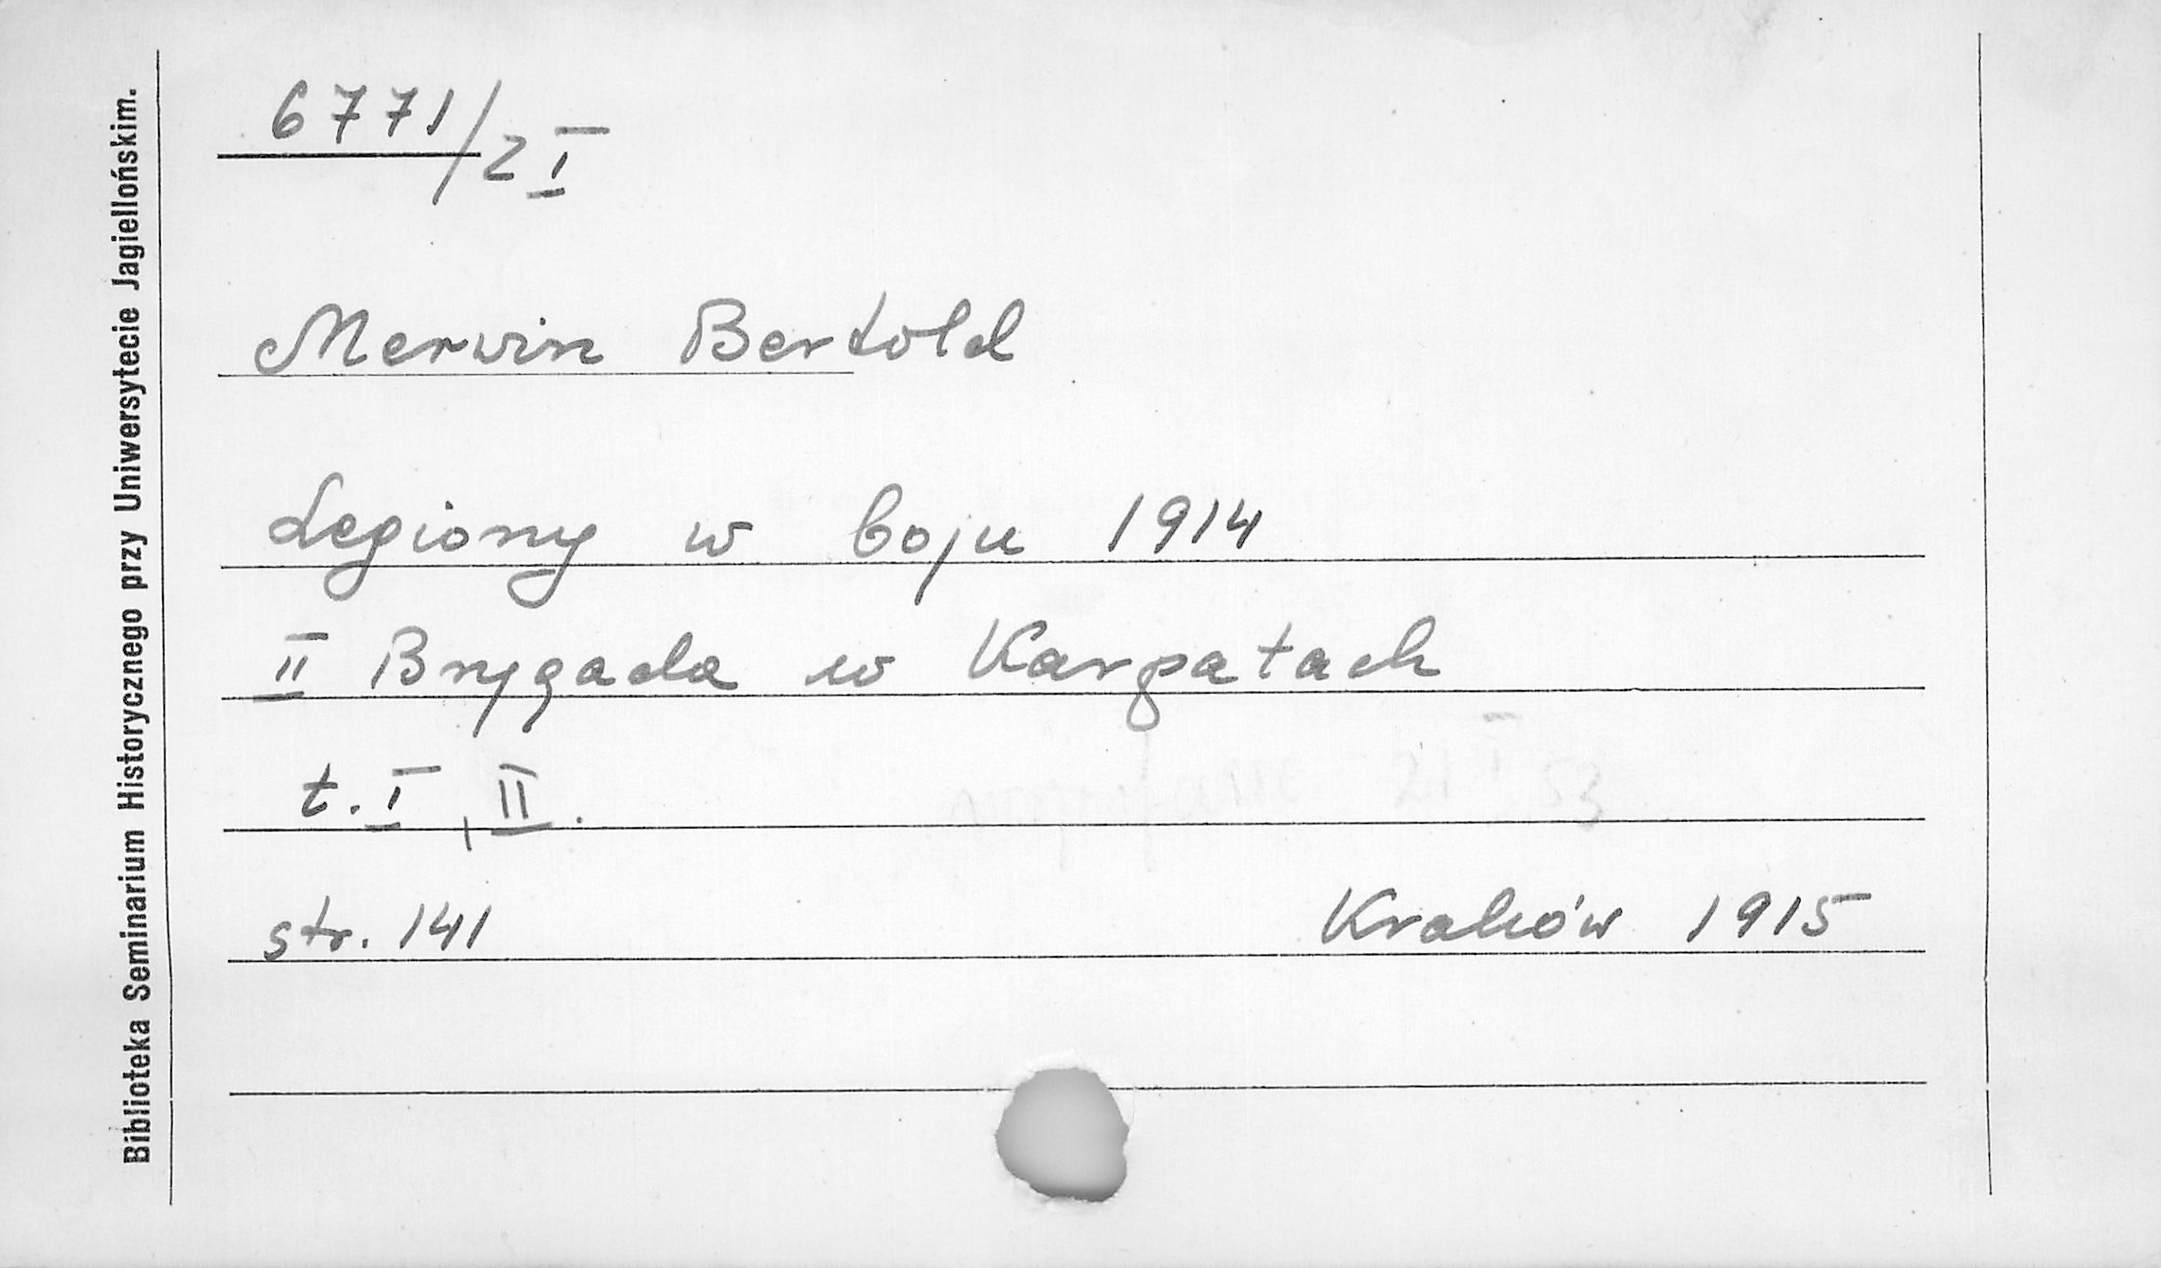 Biblioteka Seminarium Historycznego przy Uniwersytecie Jagiellońskim.
6771/2 I
Merwin Bertold
Legiony w boju 1914
II Brygada w Karpatach
t. I, II.
str. 141 Kraków 1915